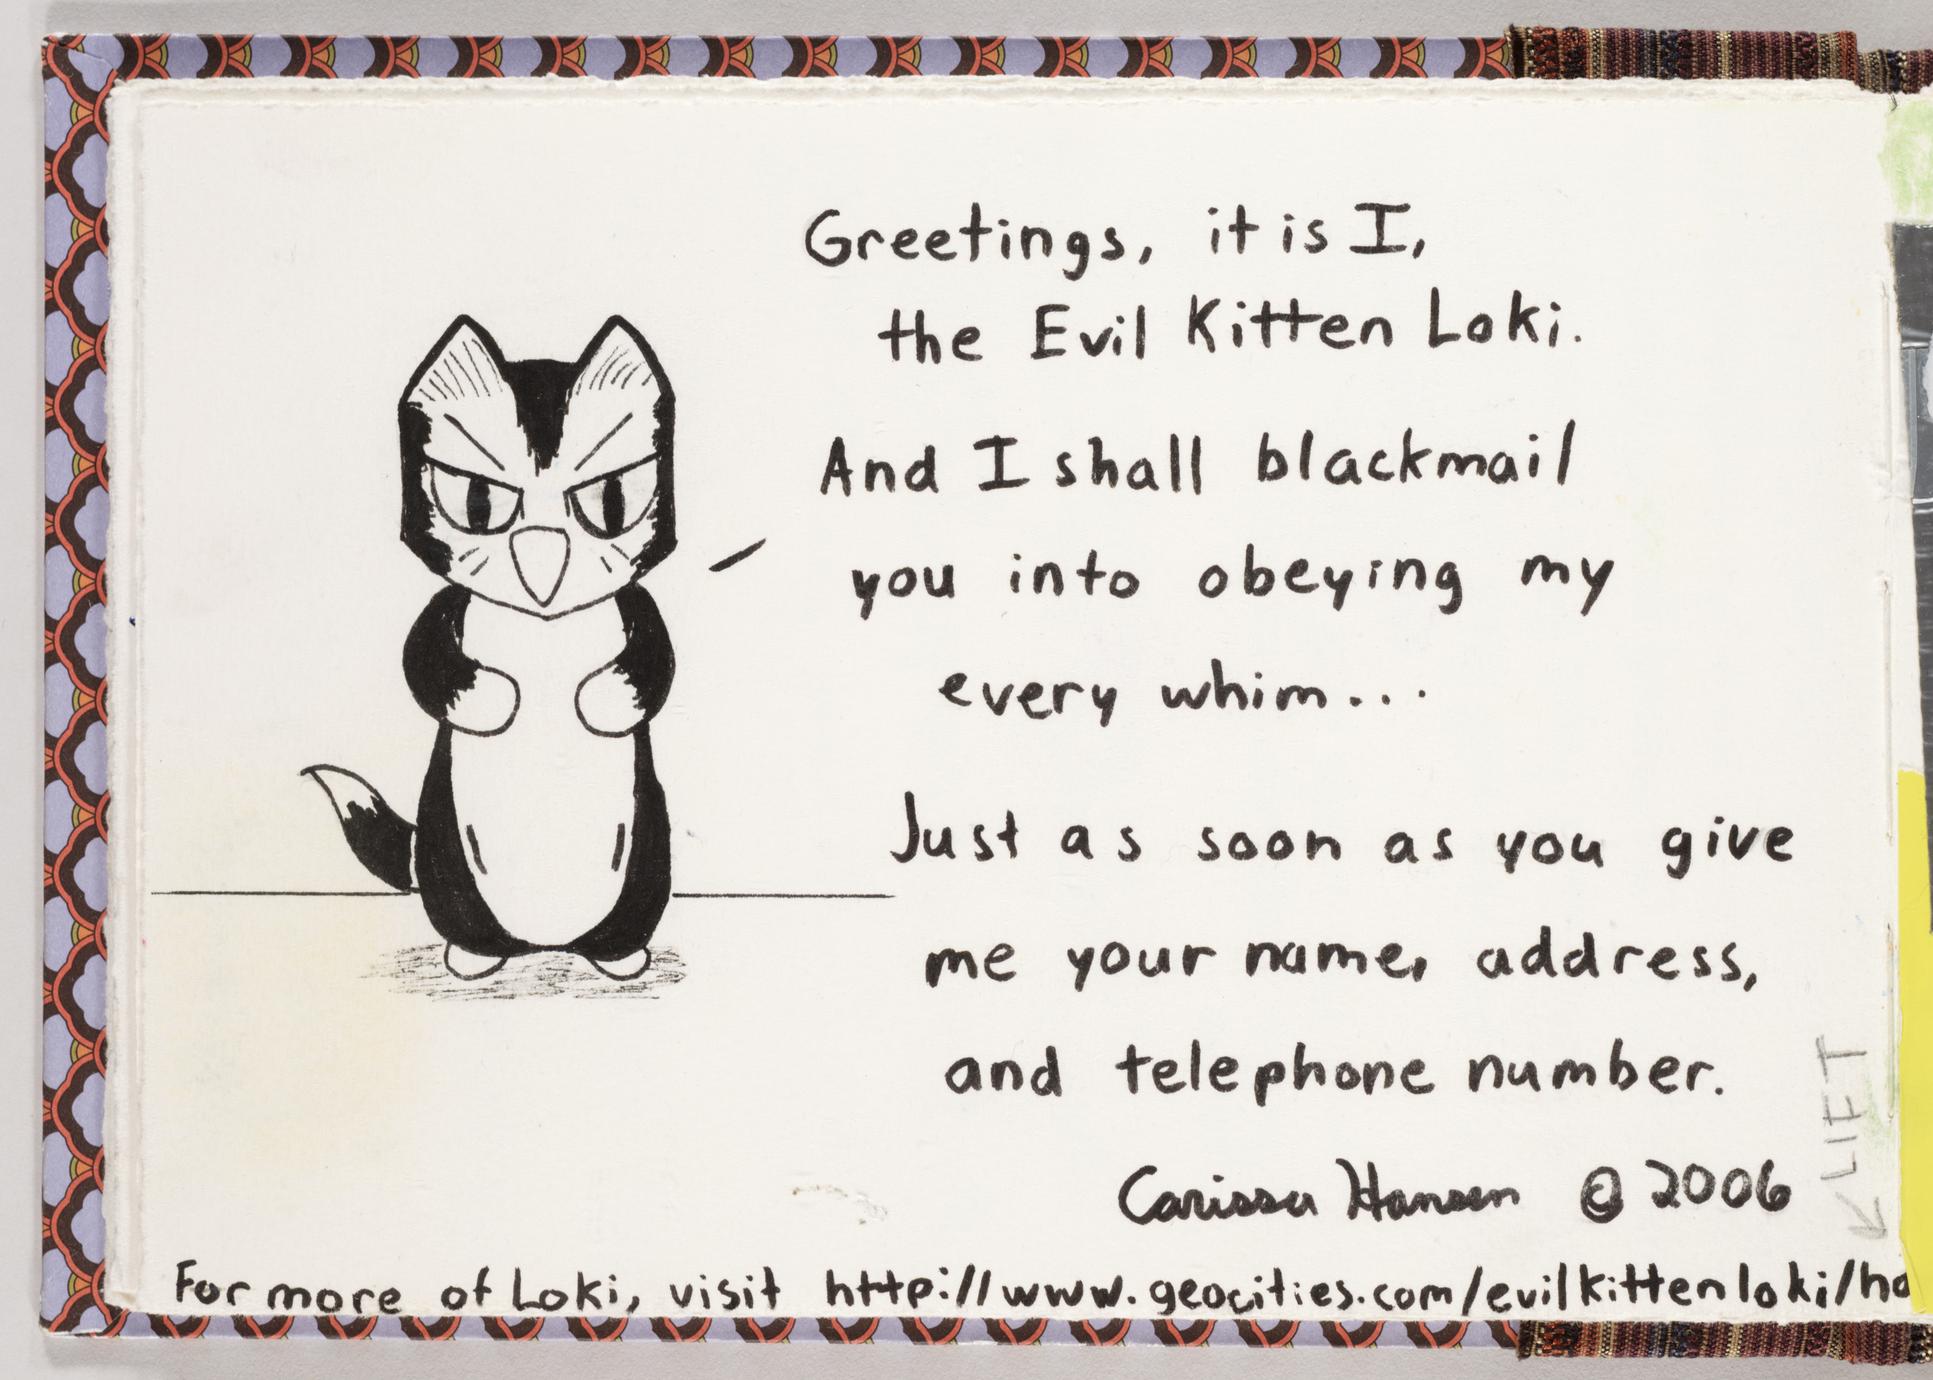 Greetings, it is I,
the Evil Kitten Loki.
And I shall blackmail
you into obeying my
every whim...
Just as soon as you give
me your name, address,
and telephone number.
Carissa Hansen © 2006
LIFT
For more of Loki, visit http://www.geocities.com/evilkittenloki/ho